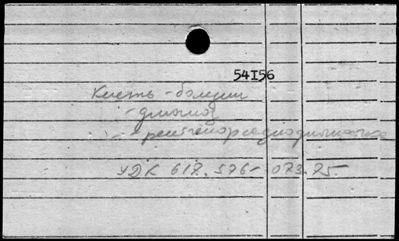 54I56
Кисть - болезни
- диагноз
- рентгенорадиодиагностика
УДК 617.576-073.75